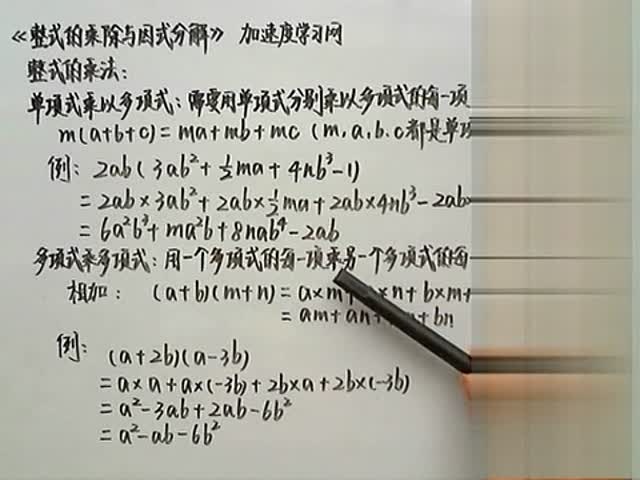 《整式的乘除与因式分解》 加速度学习网
整式的乘法：
单项式乘以多项式：需要用单项式分别乘以多项式的每一项
m(a+b+c)=ma+mb+mc (m,a,b,c都是单项
例： 2ab(3ab²+½ma+4nb³-1)
=2ab×3ab²+2ab×½ma+2ab×4nb³-2ab×
=6a²b³+ma²b+8nab⁴-2ab
多项式乘多项式：用一个多项式的每一项乘另一个多项式的每
相加： (a+b)(m+n)=a×m+ ×n+b×m+
=am+an+ +bn
例： (a+2b)(a-3b)
=a×a+a×(-3b)+2b×a+2b×(-3b)
=a²-3ab+2ab-6b²
=a²-ab-6b²